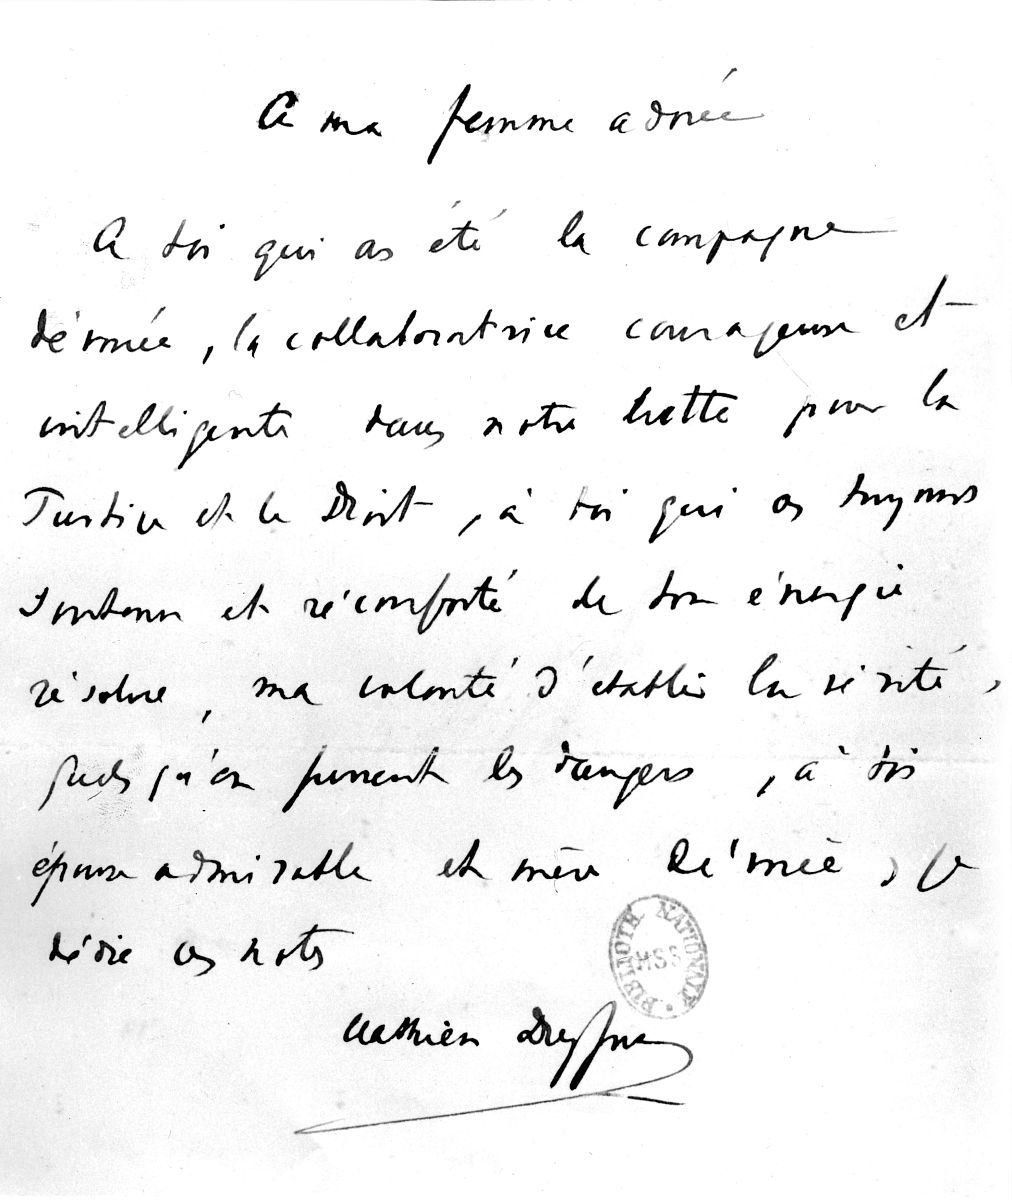 A ma femme adorée
A toi qui as été la compagne
dévouée, la collaboratrice courageuse et
intelligente dans notre lutte pour la
Justice et le Droit, à toi qui as toujours
soutenu et réconforté de ton énergie
résolue, ma volonté d'établir la vérité,
quels qu'en fussent les dangers, à toi
épouse admirable et mère dévouée, je
dédie ces notes
BIBLIOTH NATIONALE
MSS
Mathieu Dreyfus